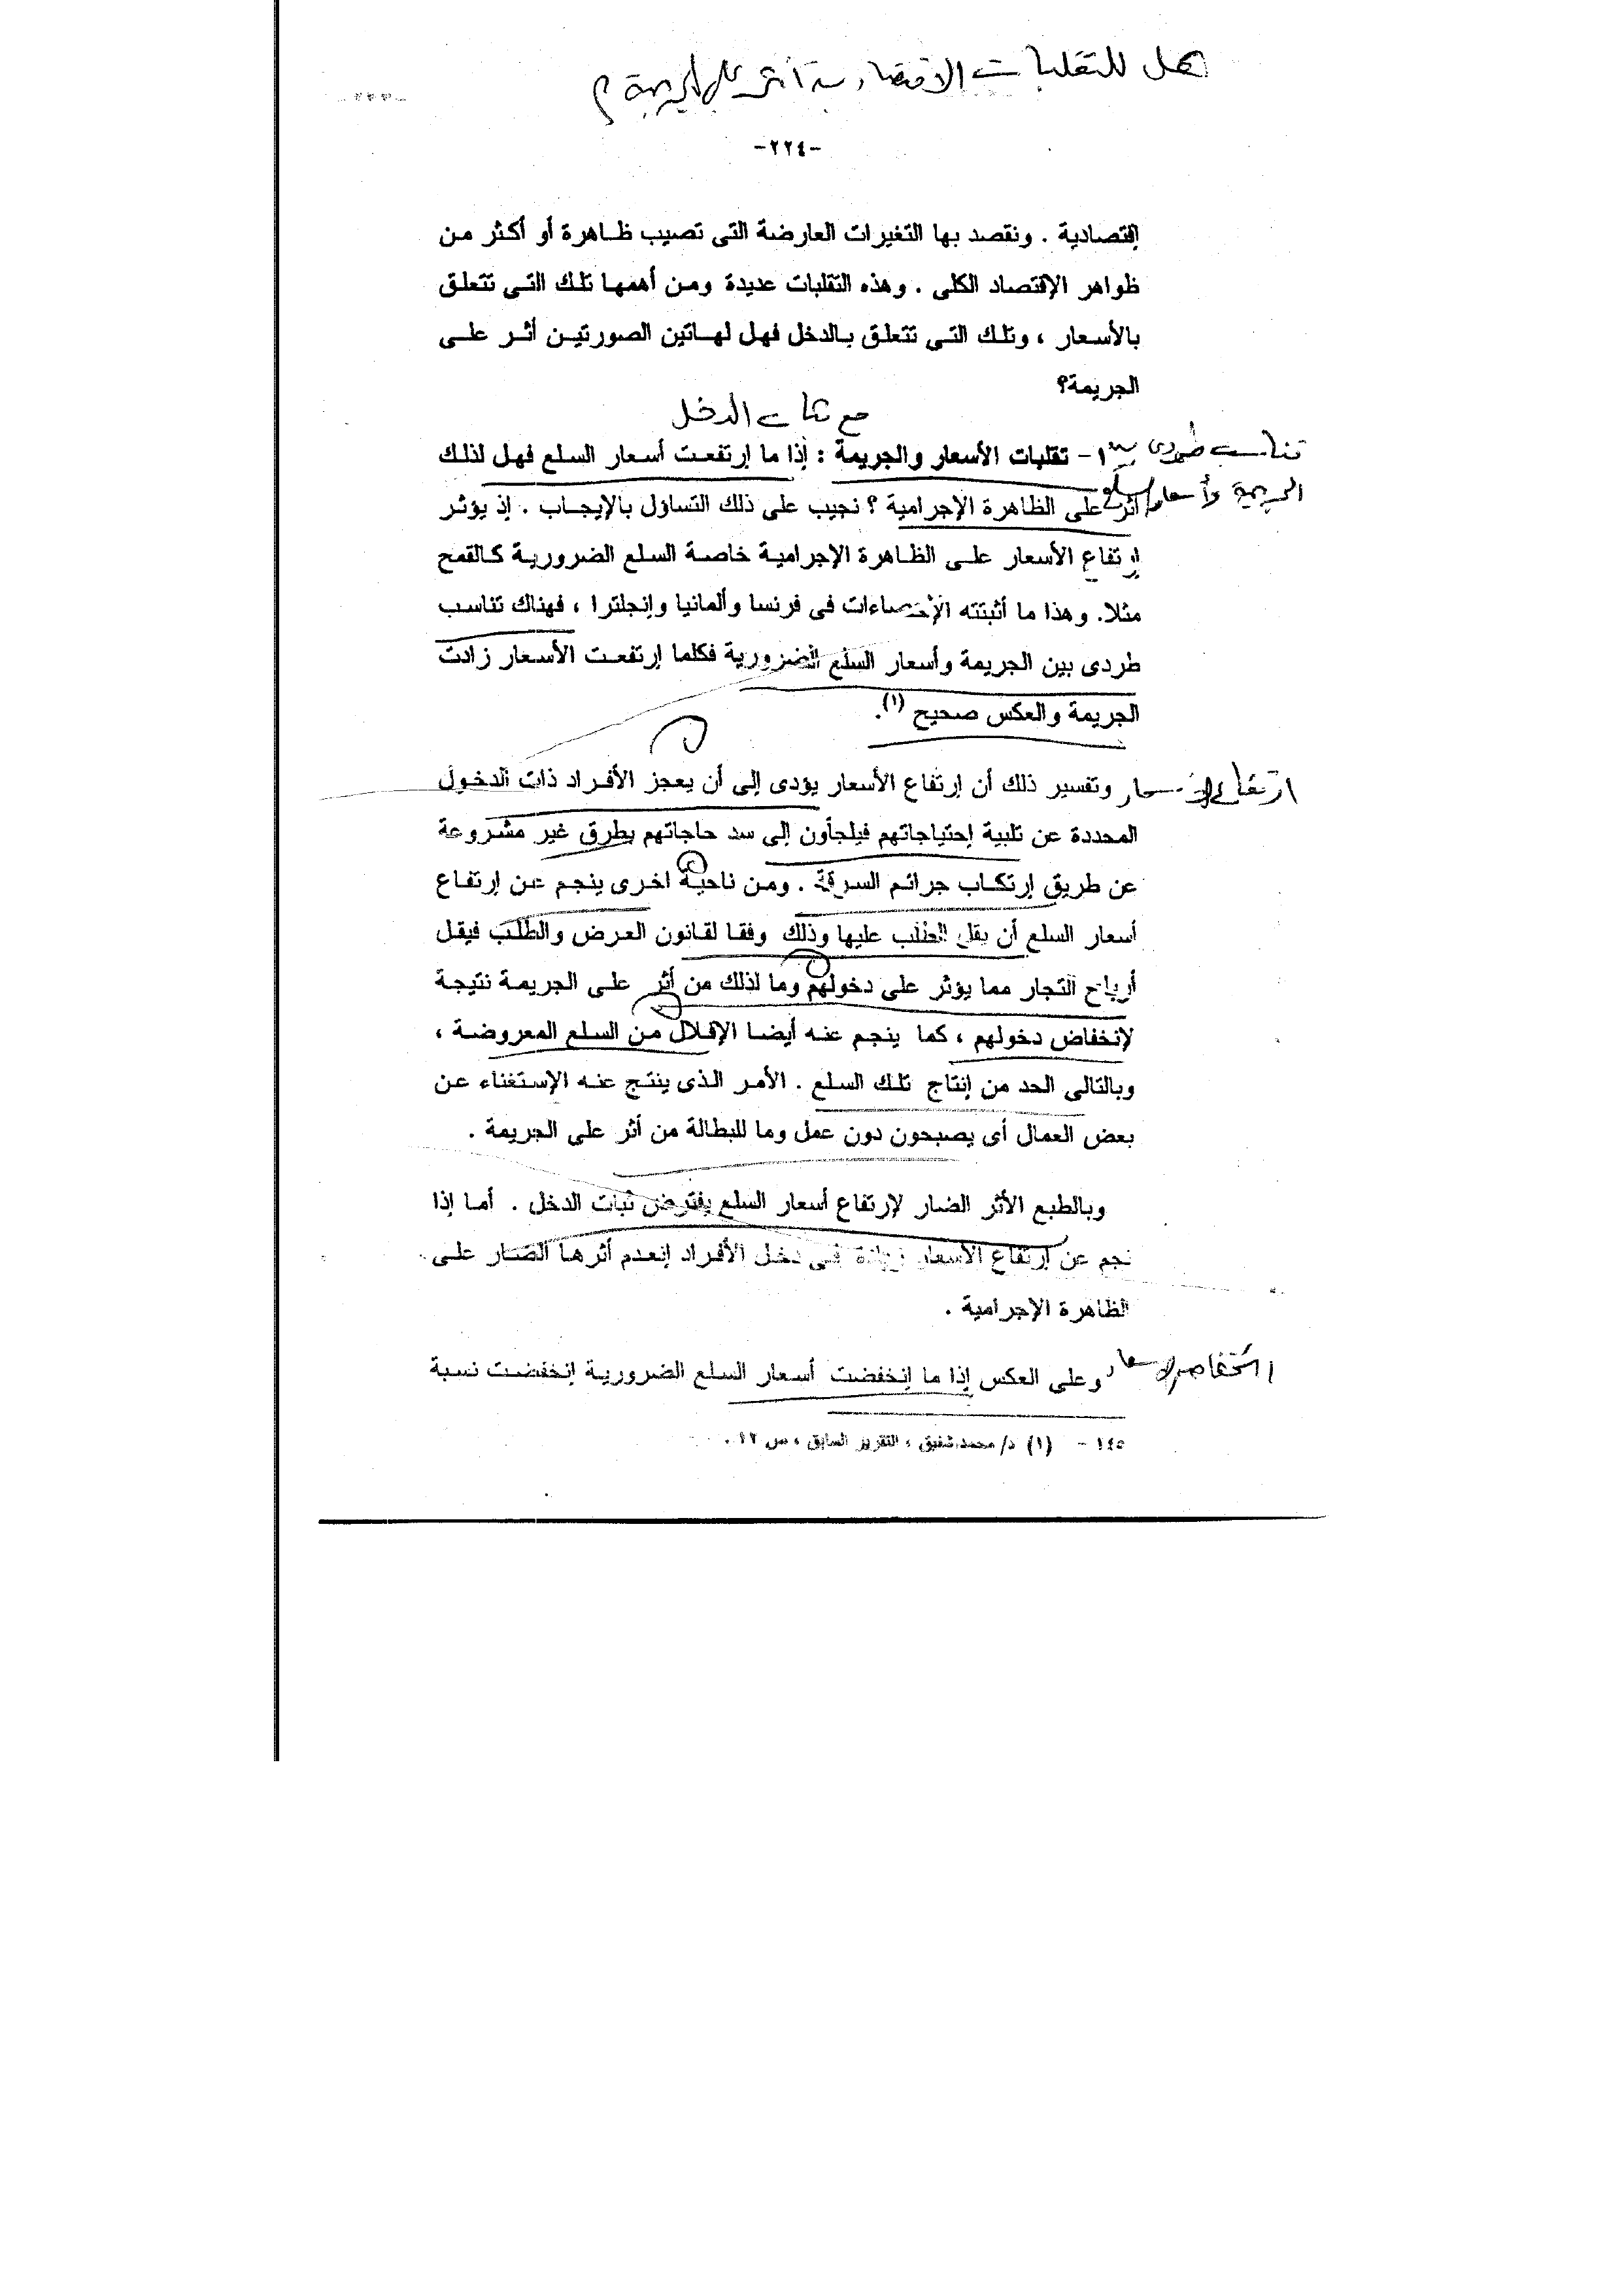 هل للتقلبات الاقتصادية أثر على الجريمة ؟
-٢٢٤-
إقتصادية . ونقصد بها التغيرات العارضة التى تصيب ظاهرة أو أكثر من
ظواهر الإقتصاد الكلى . وهذه التقلبات عديدة ومن أهمها تلك التى تتعلق
بالأسعار ، وتلك التى تتعلق بالدخل فهل لهاتين الصورتين أثر على
الجريمة؟
مع ثبات الدخل
تناسب طردى بين
١- تقلبات الأسعار والجريمة : إذا ما إرتفعت أسعار السلع فهل لذلك
الجريمة وأسعار السلع
أثر على الظاهرة الإجرامية ؟ نجيب على ذلك التساؤل بالإيجاب . إذ يؤثر
إرتفاع الأسعار على الظاهرة الإجرامية خاصة السلع الضرورية كالقمح
مثلا. وهذا ما أثبتته الإحصاءات فى فرنسا وألمانيا وإنجلترا ، فهناك تناسب
طردى بين الجريمة وأسعار السلع الضرورية فكلما إرتفعت الأسعار زادت
الجريمة والعكس صحيح (١).
ارتفاع الاسعار
وتفسير ذلك أن إرتفاع الأسعار يؤدى إلى أن يعجز الأفراد ذات الدخول
المحددة عن تلبية إحتياجاتهم فيلجأون إلى سد حاجاتهم بطرق غير مشروعة
عن طريق إرتكاب جرائم السرقة . ومن ناحية اخرى ينجم عن إرتفاع
أسعار السلع أن يقل الطلب عليها وذلك وفقا لقانون العرض والطلب فيقل
أرباح التجار مما يؤثر على دخولهم وما لذلك من أثر على الجريمة نتيجة
لإنخفاض دخولهم ، كما ينجم عنه أيضا الإقلال من السلع المعروضة ،
وبالتالى الحد من إنتاج تلك السلع . الأمر الذى ينتج عنه الإستغناء عن
بعض العمال أى يصبحون دون عمل وما للبطالة من أثر على الجريمة .
وبالطبع الأثر الضار لإرتفاع أسعار السلع يفترض ثبات الدخل . أما إذا
نجم عن إرتفاع الأسعار زيادة فى دخل الأفراد إنعدم أثرها الضار على
الظاهرة الإجرامية .
انخفاض الاسعار
وعلى العكس إذا ما إنخفضت أسعار السلع الضرورية إنخفضت نسبة
١٤٥ - (١) د/ محمد شفيق ، التقرير السابق ، ص